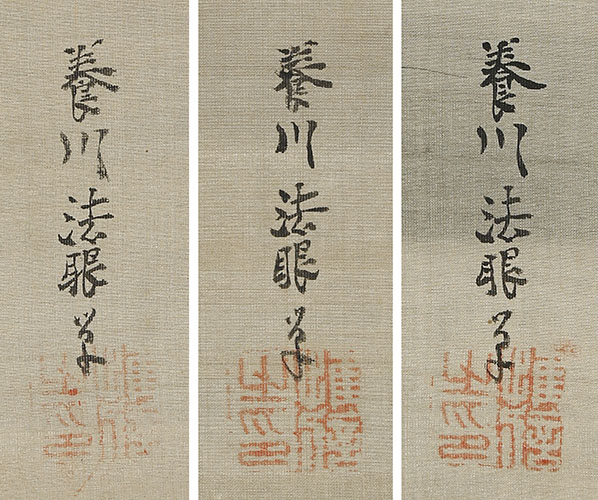 養川法眼筆
養川法眼筆
養川法眼筆